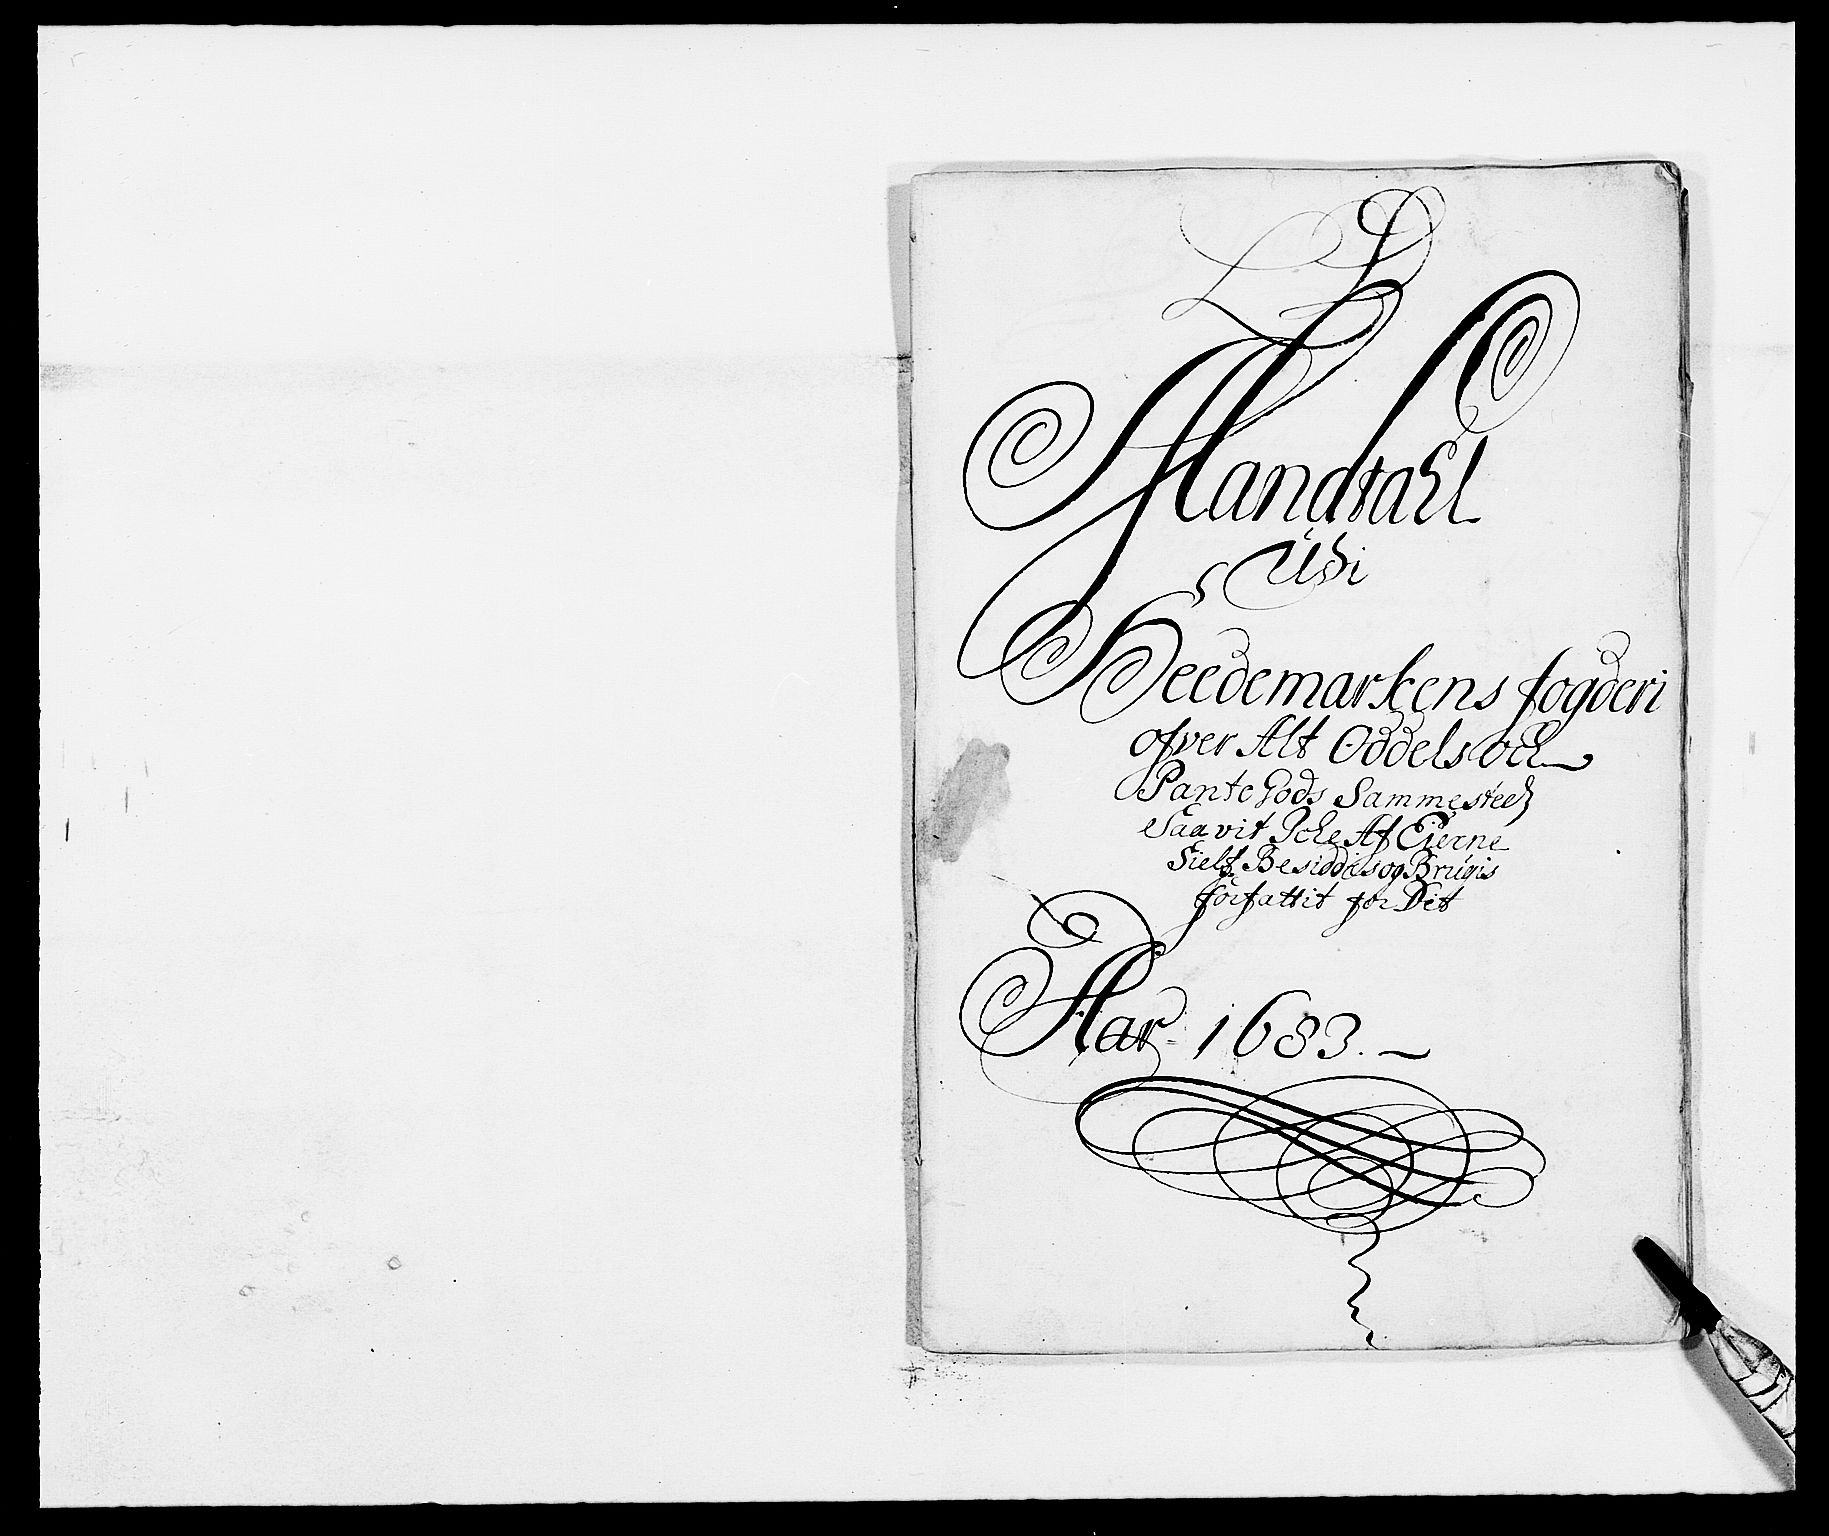 Mandtall
Udi
Heedemarkens fogderi
ofver Alt Oddels och
Pante Gods Sammesteds
Saa vit Iche Af Eierne
Sielf Besiddis og Brugis
forfattit for Dett
Aar 1683.